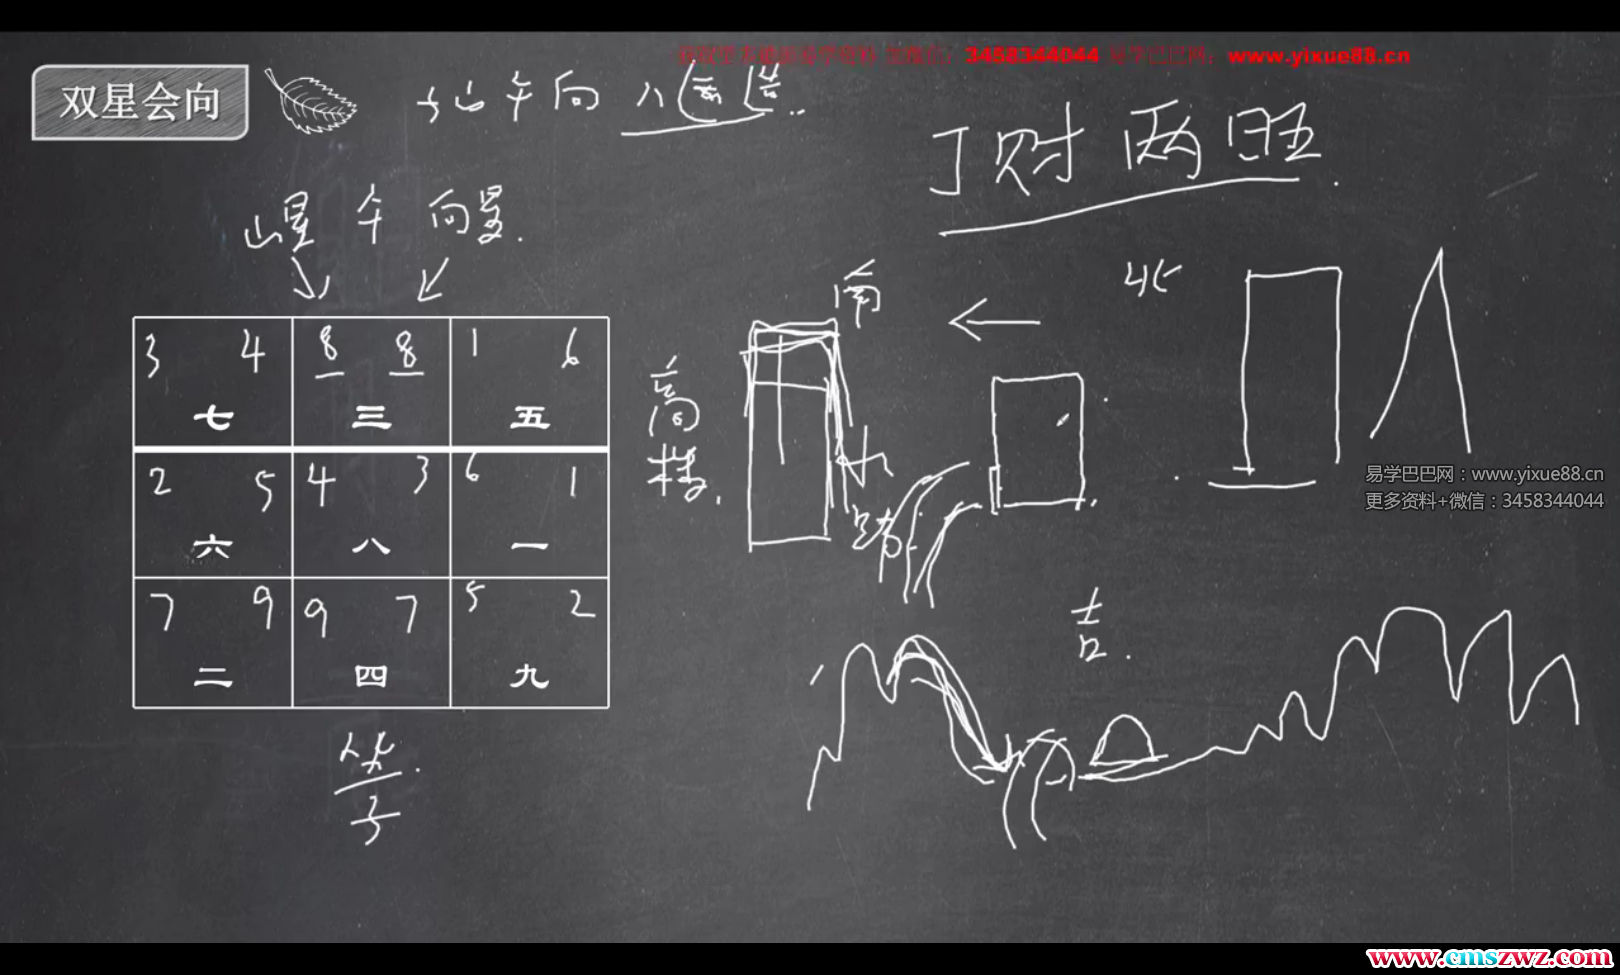 微信：3458344044 易学巴巴网：www.yixue88.cn
双星会向
子山午向 八运
丁财两旺.
山星 午 向星.
南
北
3 4 8 8 1 6
七 三 五
高楼.
2 5 4 3 6 1
六 八 一
水
路
易学巴巴网：www.yixue88.cn
更多资料+微信：3458344044
7 9 9 7 5 2
二 四 九
吉.
坐
子
www.cmszwz.com